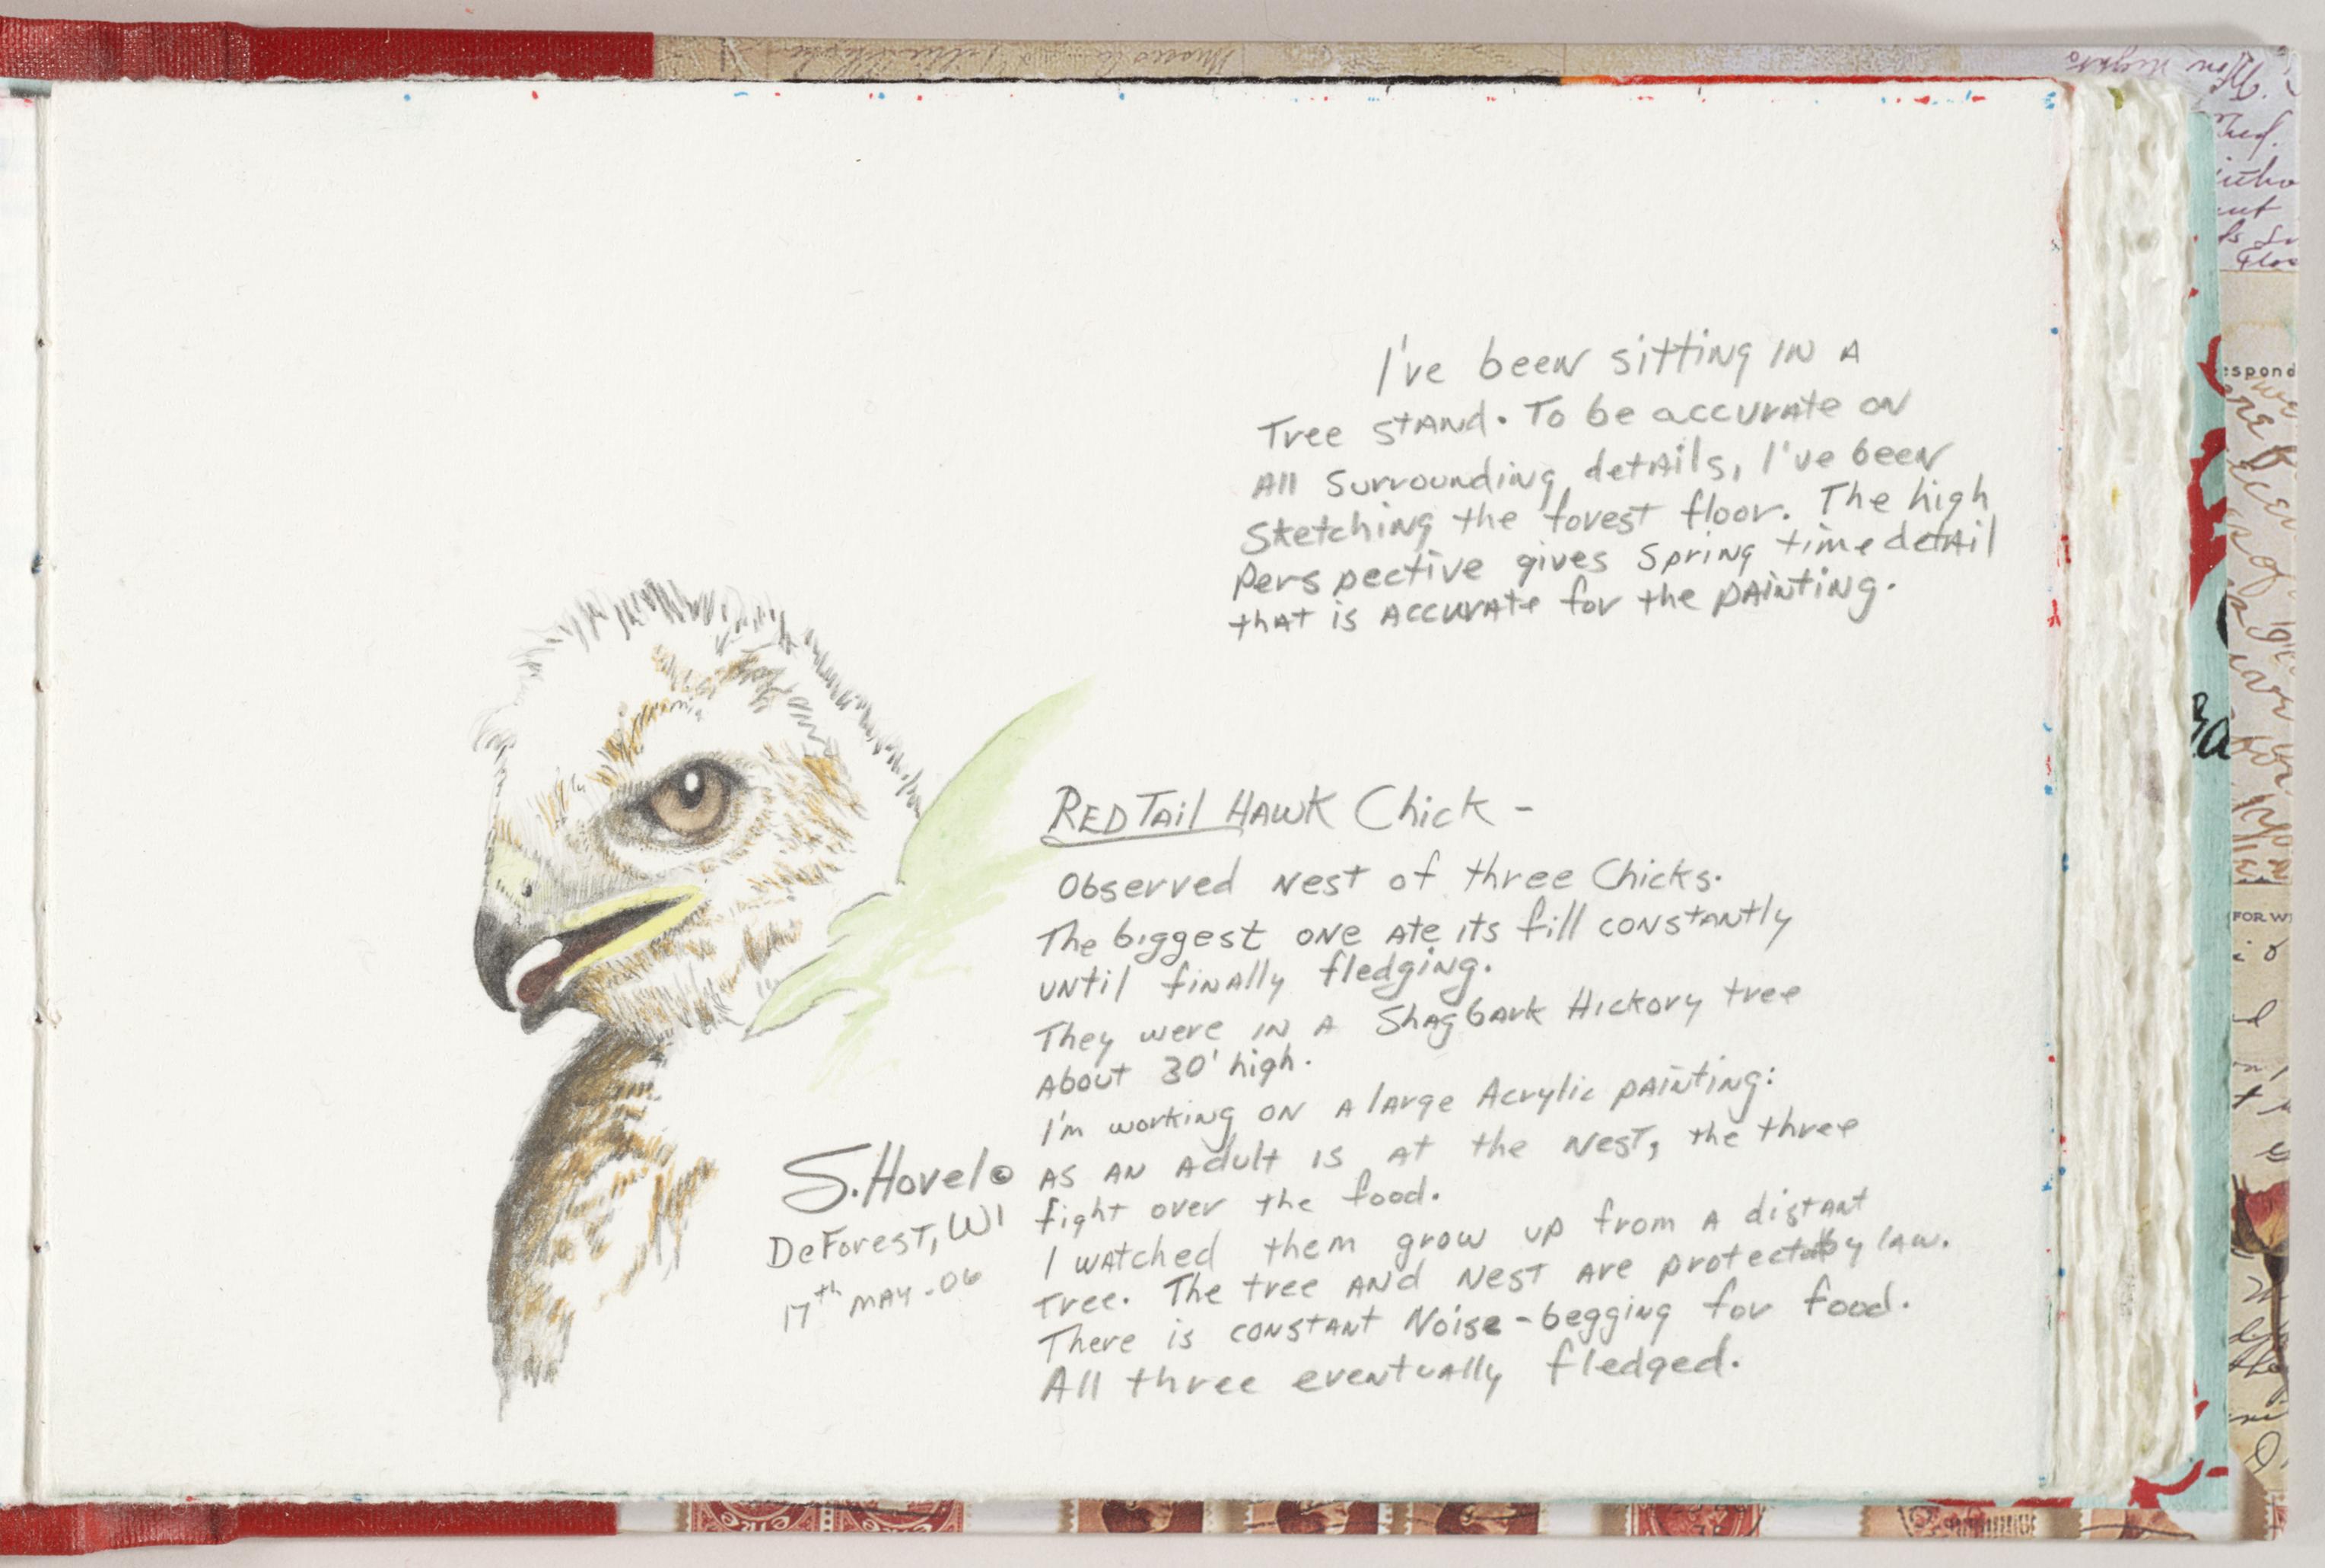 I've been sitting in a
Tree stand. To be accurate on
All surrounding details, I've been
sketching the forest floor. The high
perspective gives Spring time detail
that is accurate for the painting.
RED Tail Hawk Chick -
Observed nest of three Chicks.
The biggest one ate its fill constantly
until finally fledging.
They were in a Shagbark Hickory tree
About 30' high.
I'm working on a large Acrylic painting:
as an adult is at the nest, the three
fight over the food.
I watched them grow up from a distant
tree. The tree and nest are protected by law.
There is constant noise - begging for food.
All three eventually fledged.
S. Hovel ©
DeForest, WI
17th May - 06
espond
FOR W